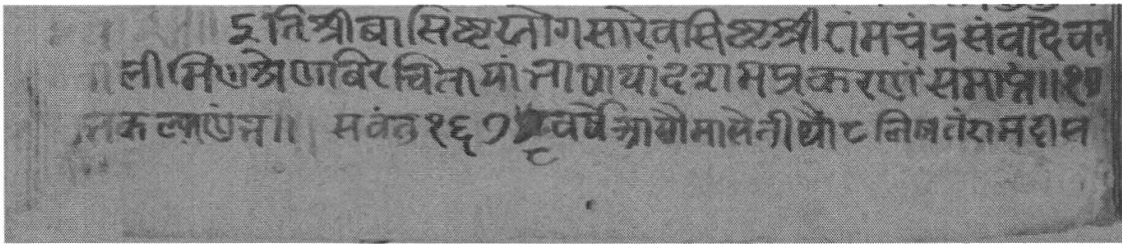 इति श्रीबासिष्टय्तोगसारे वसिष्टश्रीरामचंद्र संवादे वन
ली मिणश्रेण विरचितायां भाषायां दशमप्रकरणं समाप्तं॥१०
कल्याणंम॥ सवंत १६७ वर्षे मासे तीथौ ८ लिषतं रामदास